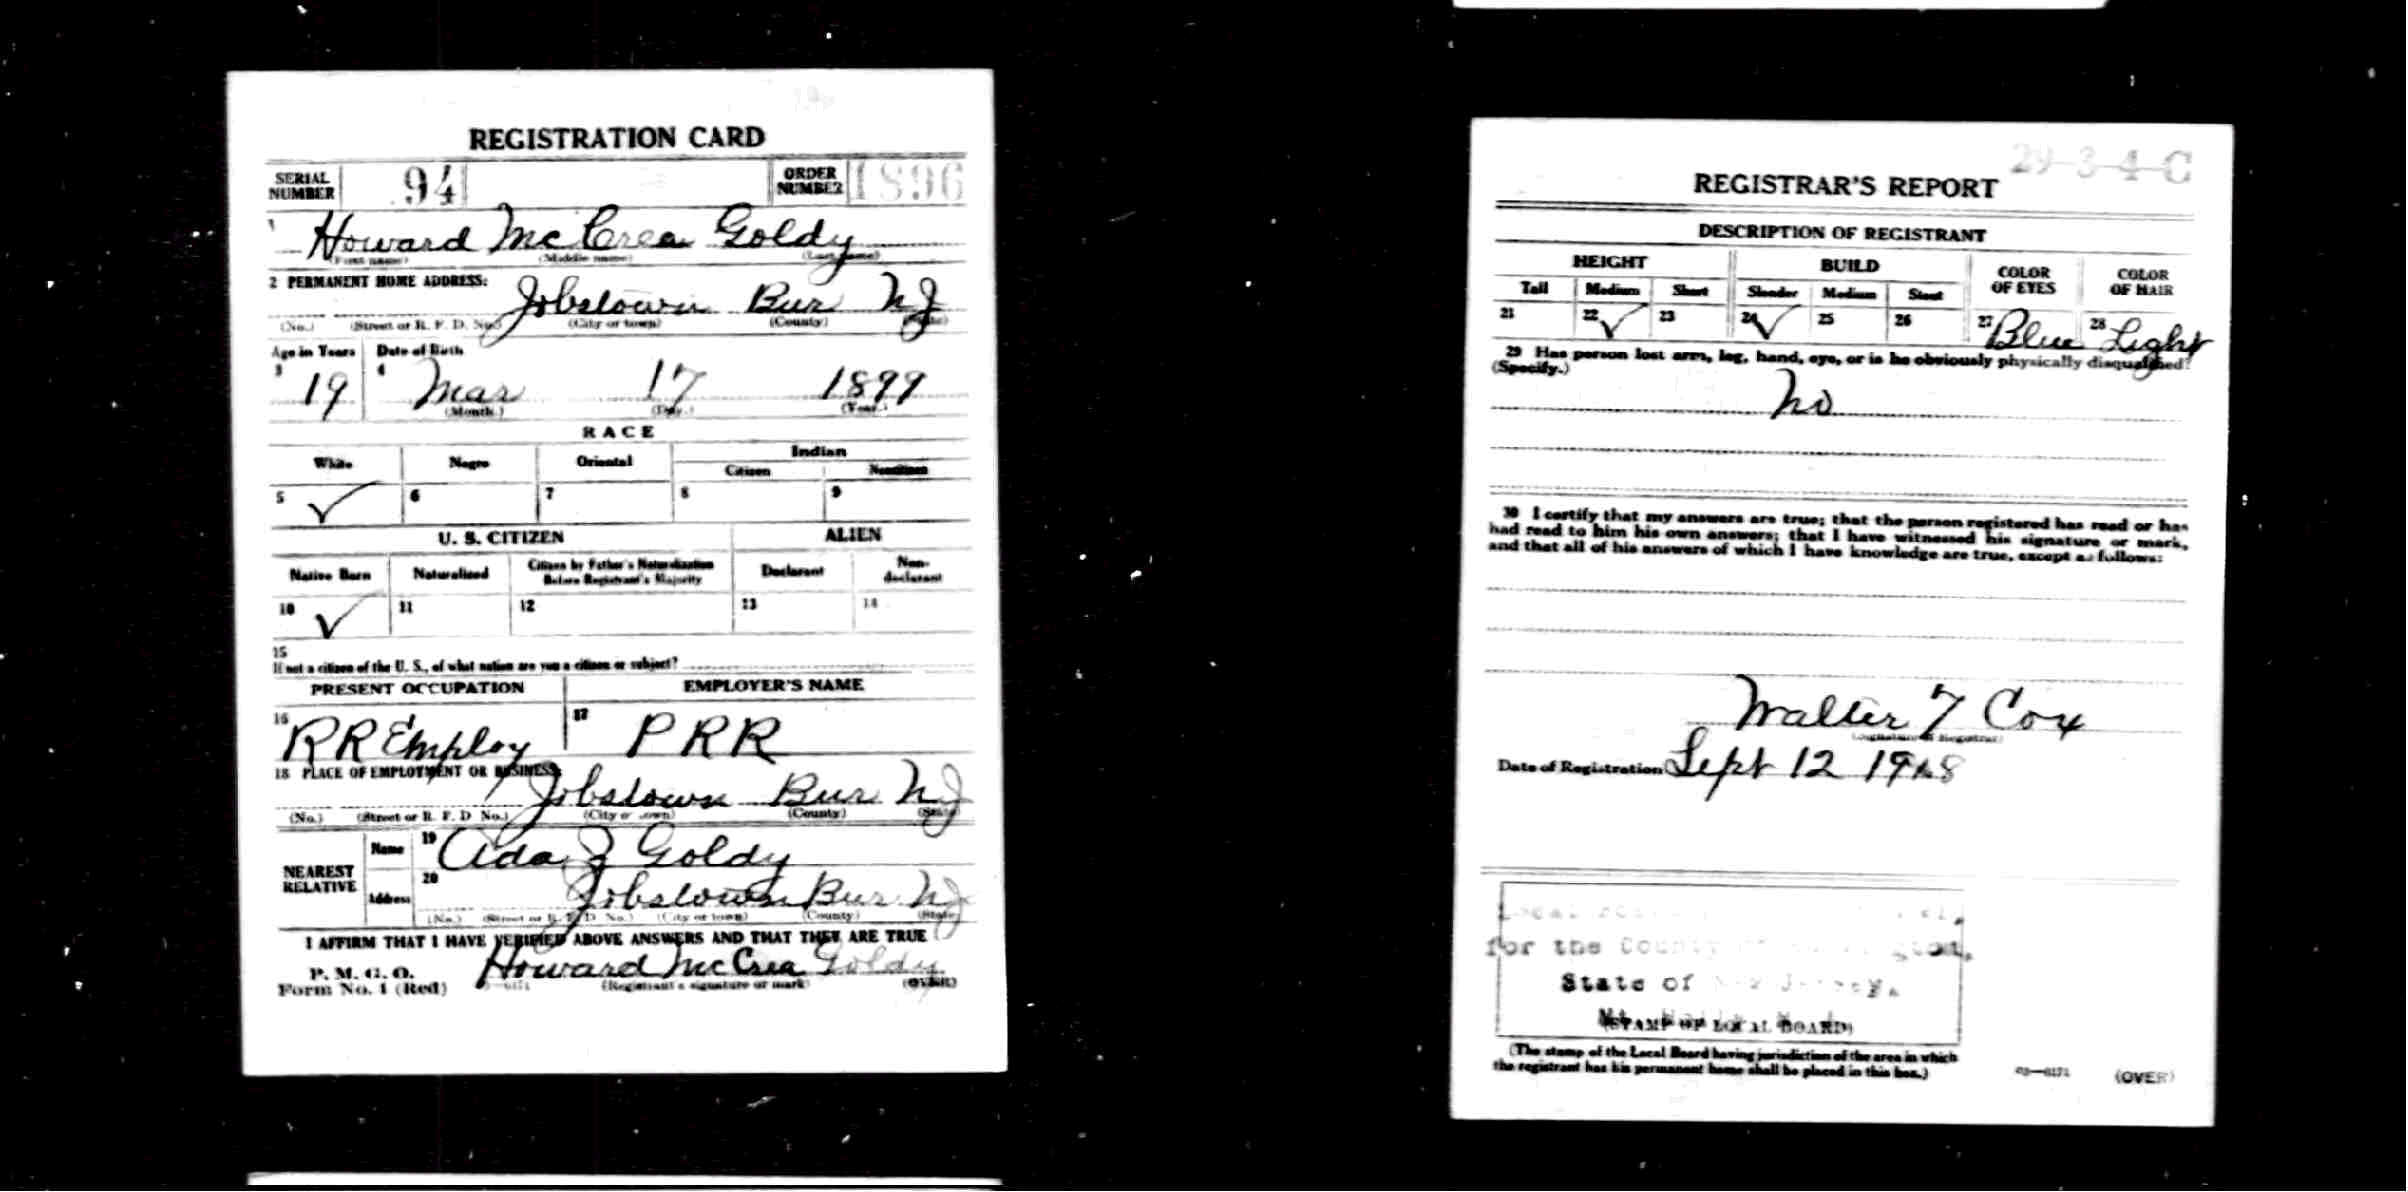 REGISTRATION CARD
SERIAL NUMBER 94 ORDER NUMBER 1896
1 Howard McCrea Goldy
(First name) (Middle name) (Last name)
2 PERMANENT HOME ADDRESS:
Jobstown Bur NJ
(No.) (Street or R. F. D. No.) (City or town) (County) (State)
Age in Years Date of Birth
3 19 4 Mar 17 1899
(Month.) (Day.) (Year.)
RACE
White Negro Oriental Indian
Citizen Noncitizen
5 ✓ 6 7 8 9
U. S. CITIZEN ALIEN
Native Born Naturalized Citizen by Father's Naturalization Before Registrant's Majority Declarant Non-declarant
10 ✓ 11 12 13 14
15
If not a citizen of the U. S., of what nation are you a citizen or subject?
PRESENT OCCUPATION EMPLOYER'S NAME
16 RR Employ 17 PRR
18 PLACE OF EMPLOYMENT OR BUSINESS:
Jobstown Bur NJ
(No.) (Street or R. F. D No.) (City or town) (County) (State)
NEAREST RELATIVE
Name 19 Ada Goldy
Address 20 Jobstown Bur NJ
(No.) (Street or R. F. D No.) (City or town) (County) (State)
I AFFIRM THAT I HAVE VERIFIED ABOVE ANSWERS AND THAT THEY ARE TRUE
P. M. G. O.
Form No. 1 (Red) Howard McCrea Goldy
(Registrant's signature or mark) (OVER)
29-3-4-C
REGISTRAR'S REPORT
DESCRIPTION OF REGISTRANT
HEIGHT BUILD COLOR OF EYES COLOR OF HAIR
Tall Medium Short Slender Medium Stout
21 22 ✓ 23 24 ✓ 25 26 27 Blue 28 Light
29 Has person lost arm, leg, hand, eye, or is he obviously physically disqualified?
(Specify.)
No
30 I certify that my answers are true; that the person registered has read or has
had read to him his own answers; that I have witnessed his signature or mark,
and that all of his answers of which I have knowledge are true, except as follows:
Walter F Cox
(Signature of Registrar)
Date of Registration Sept 12 1918
Local
for the County
State of New Jersey,
(STAMP OF LOCAL BOARD)
(The stamp of the Local Board having jurisdiction of the area in which
the registrant has his permanent home shall be placed in this box.)
03—6171 (OVER)